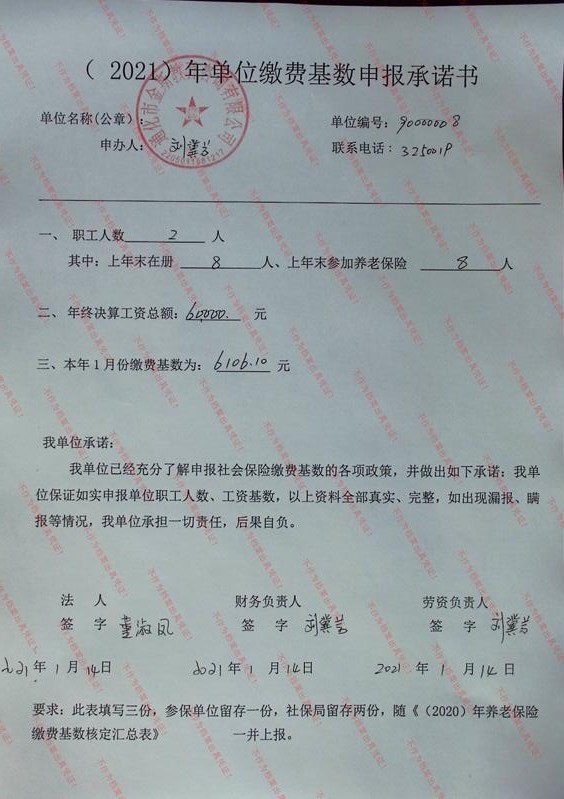 （ 2021）年单位缴费基数申报承诺书
单位名称(公章)： 单位编号：90000008
申办人： 刘冀芸 联系电话：3250019
一、 职工人数 2 人
其中：上年末在册 8 人、上年末参加养老保险 8 人
二、年终决算工资总额：60000. 元
三、本年1月份缴费基数为：6106.10 元
我单位承诺：
我单位已经充分了解申报社会保险缴费基数的各项政策，并做出如下承诺：我单
位保证如实申报单位职工人数、工资基数，以上资料全部真实、完整，如出现漏报、瞒
报等情况，我单位承担一切责任，后果自负。
法 人 财务负责人 劳资负责人
签 字 董淑凤 签 字 刘冀芸 签 字 刘冀芸
2021年1月14日 2021年1月14日 2021年1月14日
要求：此表填写三份，参保单位留存一份，社保局留存两份，随《（2020）年养老保险
缴费基数核定汇总表》 一并上报。